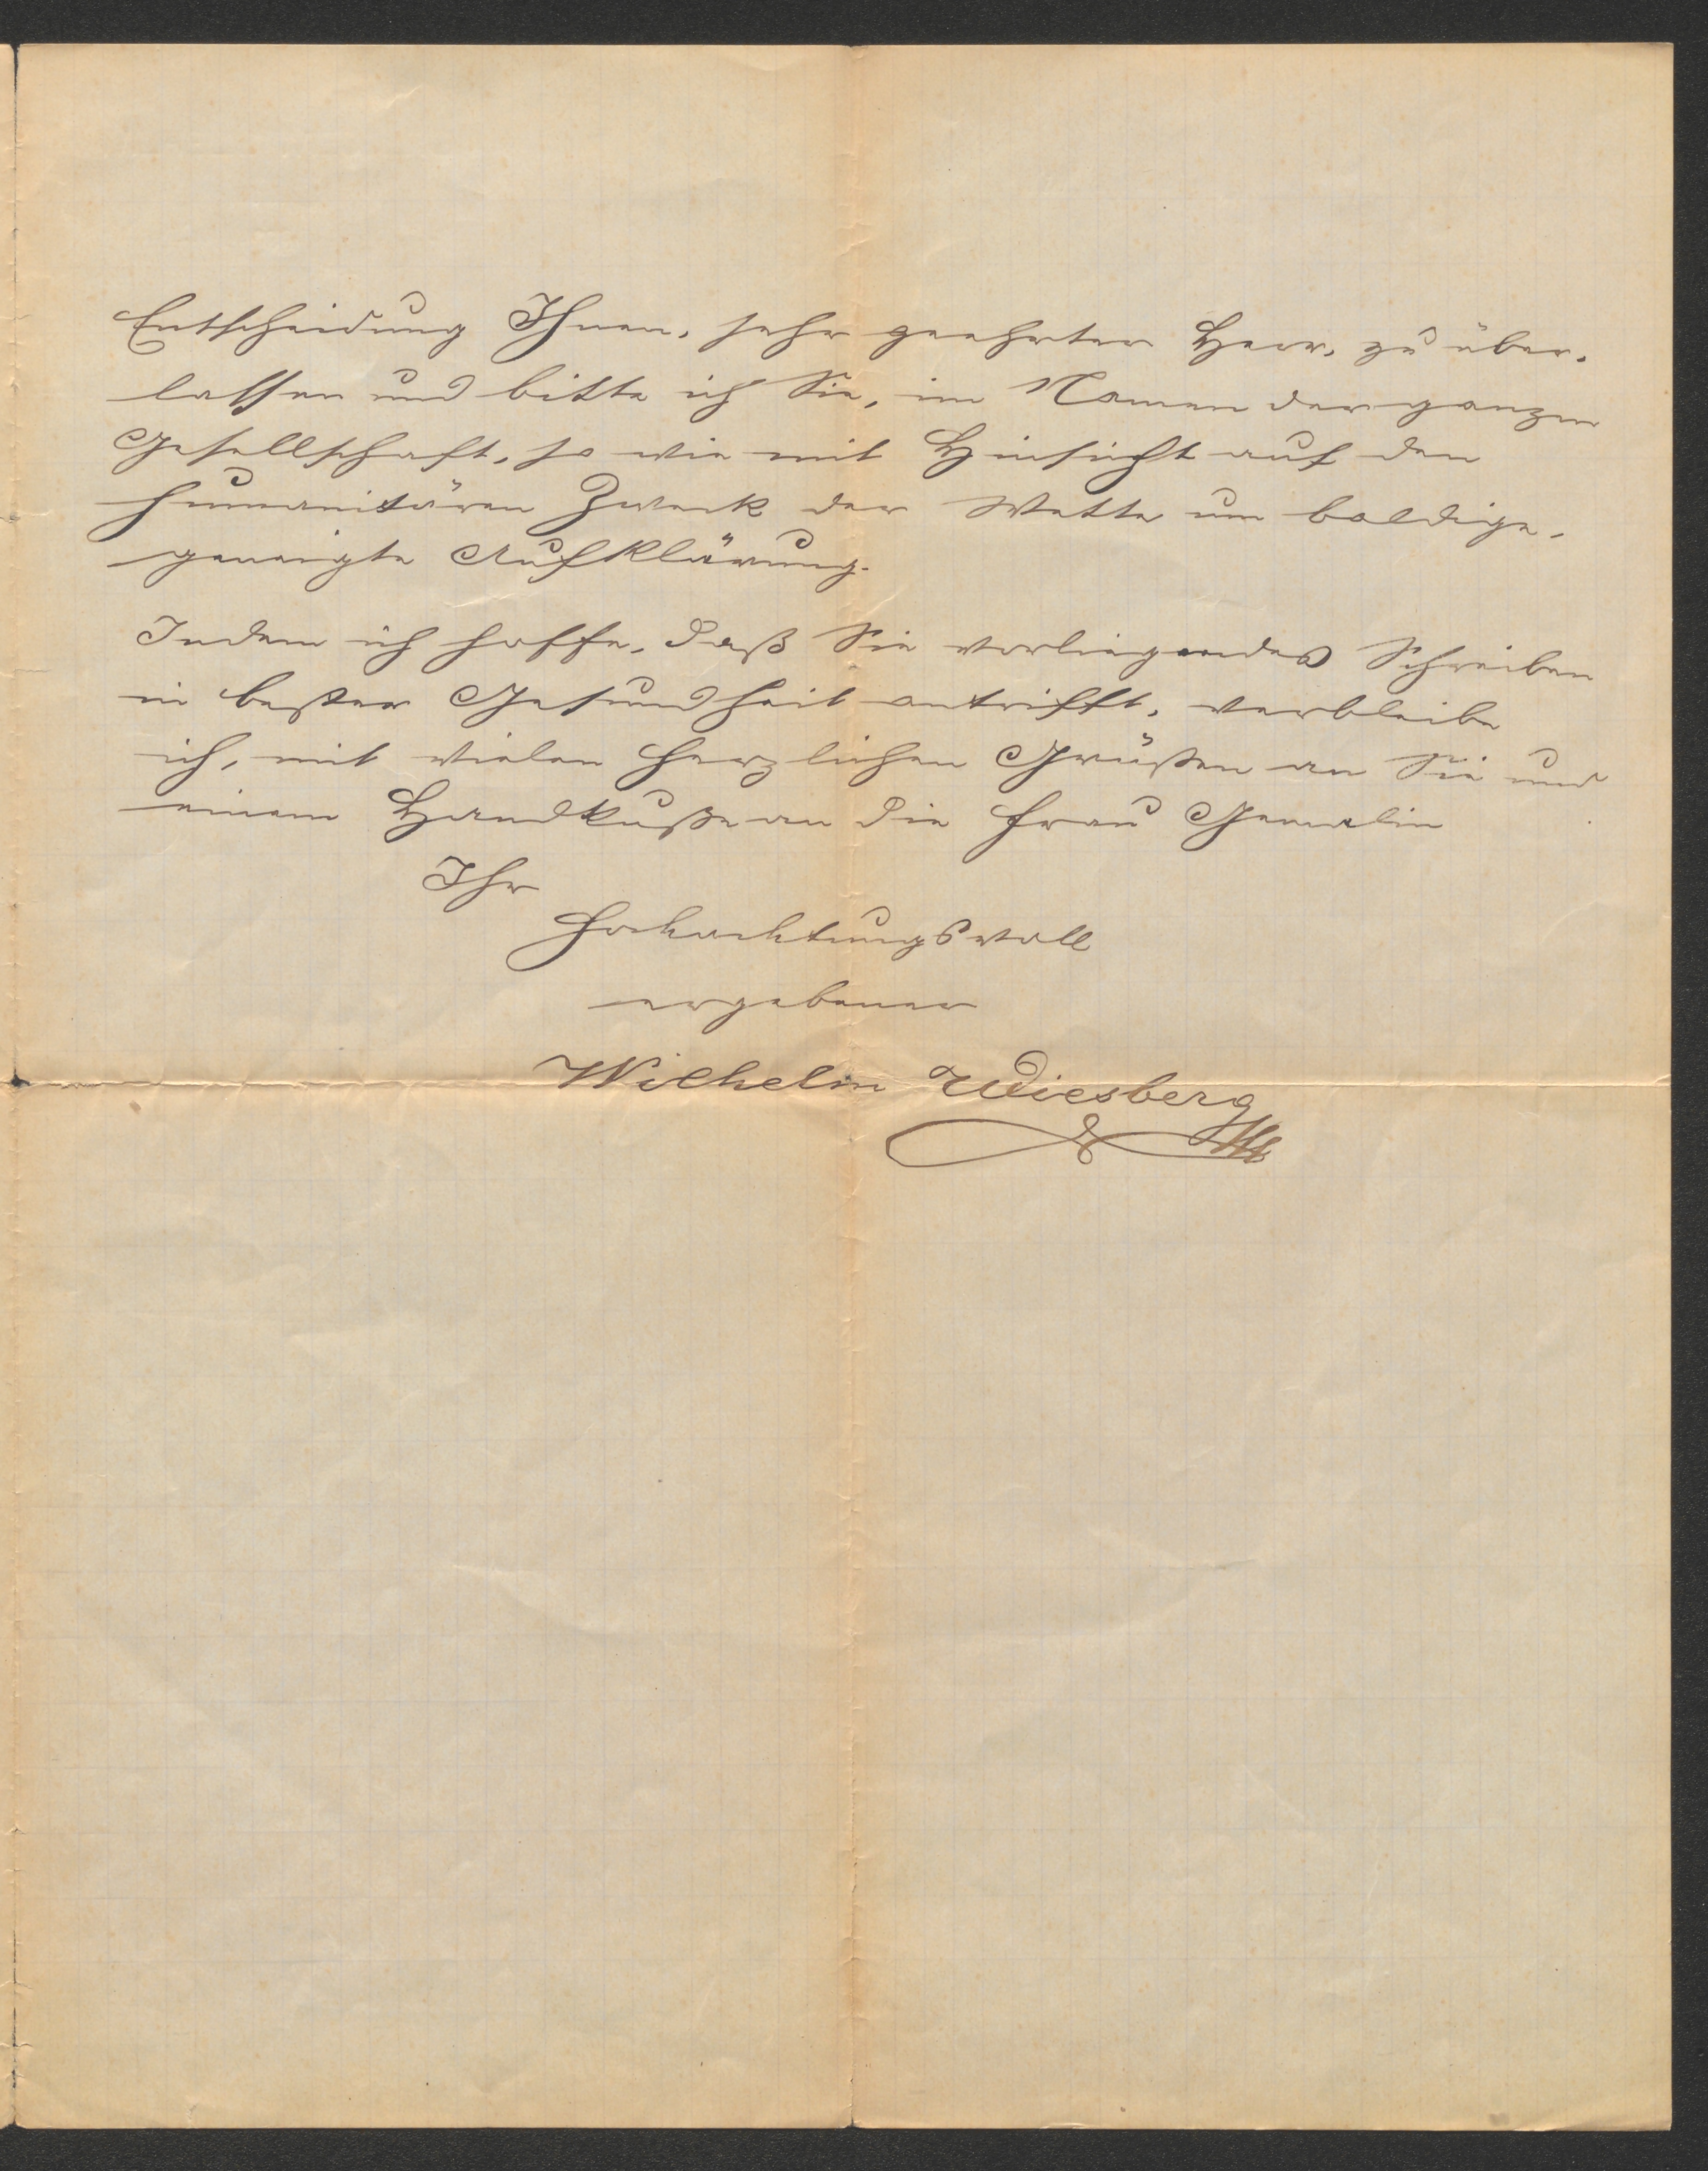 Entscheidung Ihnen, sehr geehrter Herr, zu über-
lassen und bitte ich Sie, im Namen der ganzen
Gesellschaft, so wie mit Hinsicht auf den
humanitären Zweck der Wette um baldige,
geneigte Aufklärung.
Indem ich hoffe, daß Sie vorliegendes Schreiben
in bester Gesundheit antrifft, verbleibe
ich, mit vielen herzlichen Grüßen an Sie und
einem Handkuße an die Frau Gemalin
Ihr
hochachtungsvoll
ergebener
Wilhelm Wiesberg